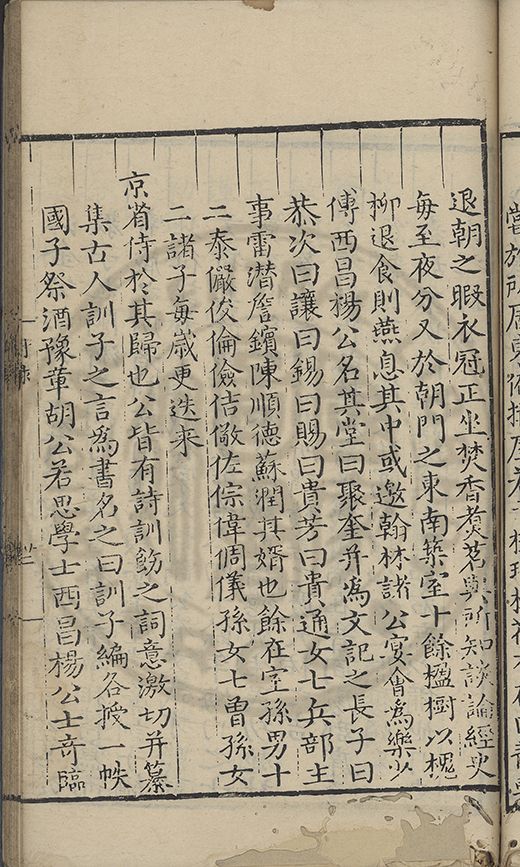 退朝之暇衣冠正坐焚香煑茗與所知談論經史
每至夜分又於朝門之東南築室十餘楹樹以槐
柳退食則燕息其中或邀翰林諸公宴會爲樂少
傅西昌楊公名其堂曰聚奎幷爲文記之長子曰
恭次曰讓曰錫曰賜曰貴芳曰貴通女七兵部主
事雷潜詹鑌陳順德蘇潤其婿也餘在室孫男十
二泰儼俊倫儉佶儆佐倧偉倜儀孫女七曾孫女
二諸子每歲更迭来
京省侍於其歸也公皆有詩訓飭之詞意激切并纂
集古人訓子之言爲書名之曰訓子編各授一帙
國子祭酒豫章胡公若思學士西昌楊公士竒臨